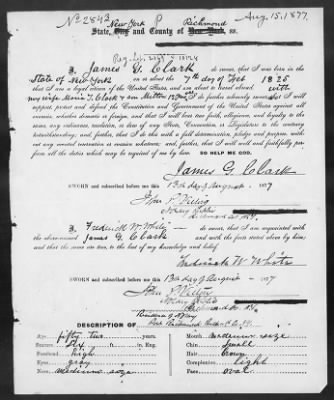 No 2843
New York P Richmond Aug. 15. 1877.
State, City and County of New York, ss.
I, James G. Clark do swear, that I was born in the
State of New York on or about the 7th day of Feb 1825
that I am a legal citizen of the United States, and am about to travel abroad with
my wife Maria L. Clark & son I do further solemnly swear that I will support
support, protect and defend the Constitution and Government of the United States against all
enemies, whether domestic or foreign, and that I will bear true faith, allegiance and loyalty to the
same, any ordinance, resolution, or law of any State, Convention, or Legislature to the contrary
notwithstanding; and further, that I do this with a full determination, pledge and purpose, without
any mental reservation or evasion whatsoever; and, further, that I will well and faithfully per-
form all the duties which may be required of me by law. SO HELP ME GOD.
James G. Clark
SWORN and subscribed before me this 13th day of August 1877
Notary Public
I, Frederick W. White do swear, that I am acquainted with
the above-named James G. Clark and with the facts stated above by him;
and the same are true, to the best of my knowledge and belief.
Frederick W. White
SWORN and subscribed before me this 13th day of August 1877
Notary Public
Richmond Co. N.Y.
DESCRIPTION OF
Age: fifty two years.
Stature: Six ft. in. Eng.
Forehead: high
Eyes: gray
Nose: medium size
Mouth: medium size
Chin: small
Hair: brown
Complexion: light
Face: oval